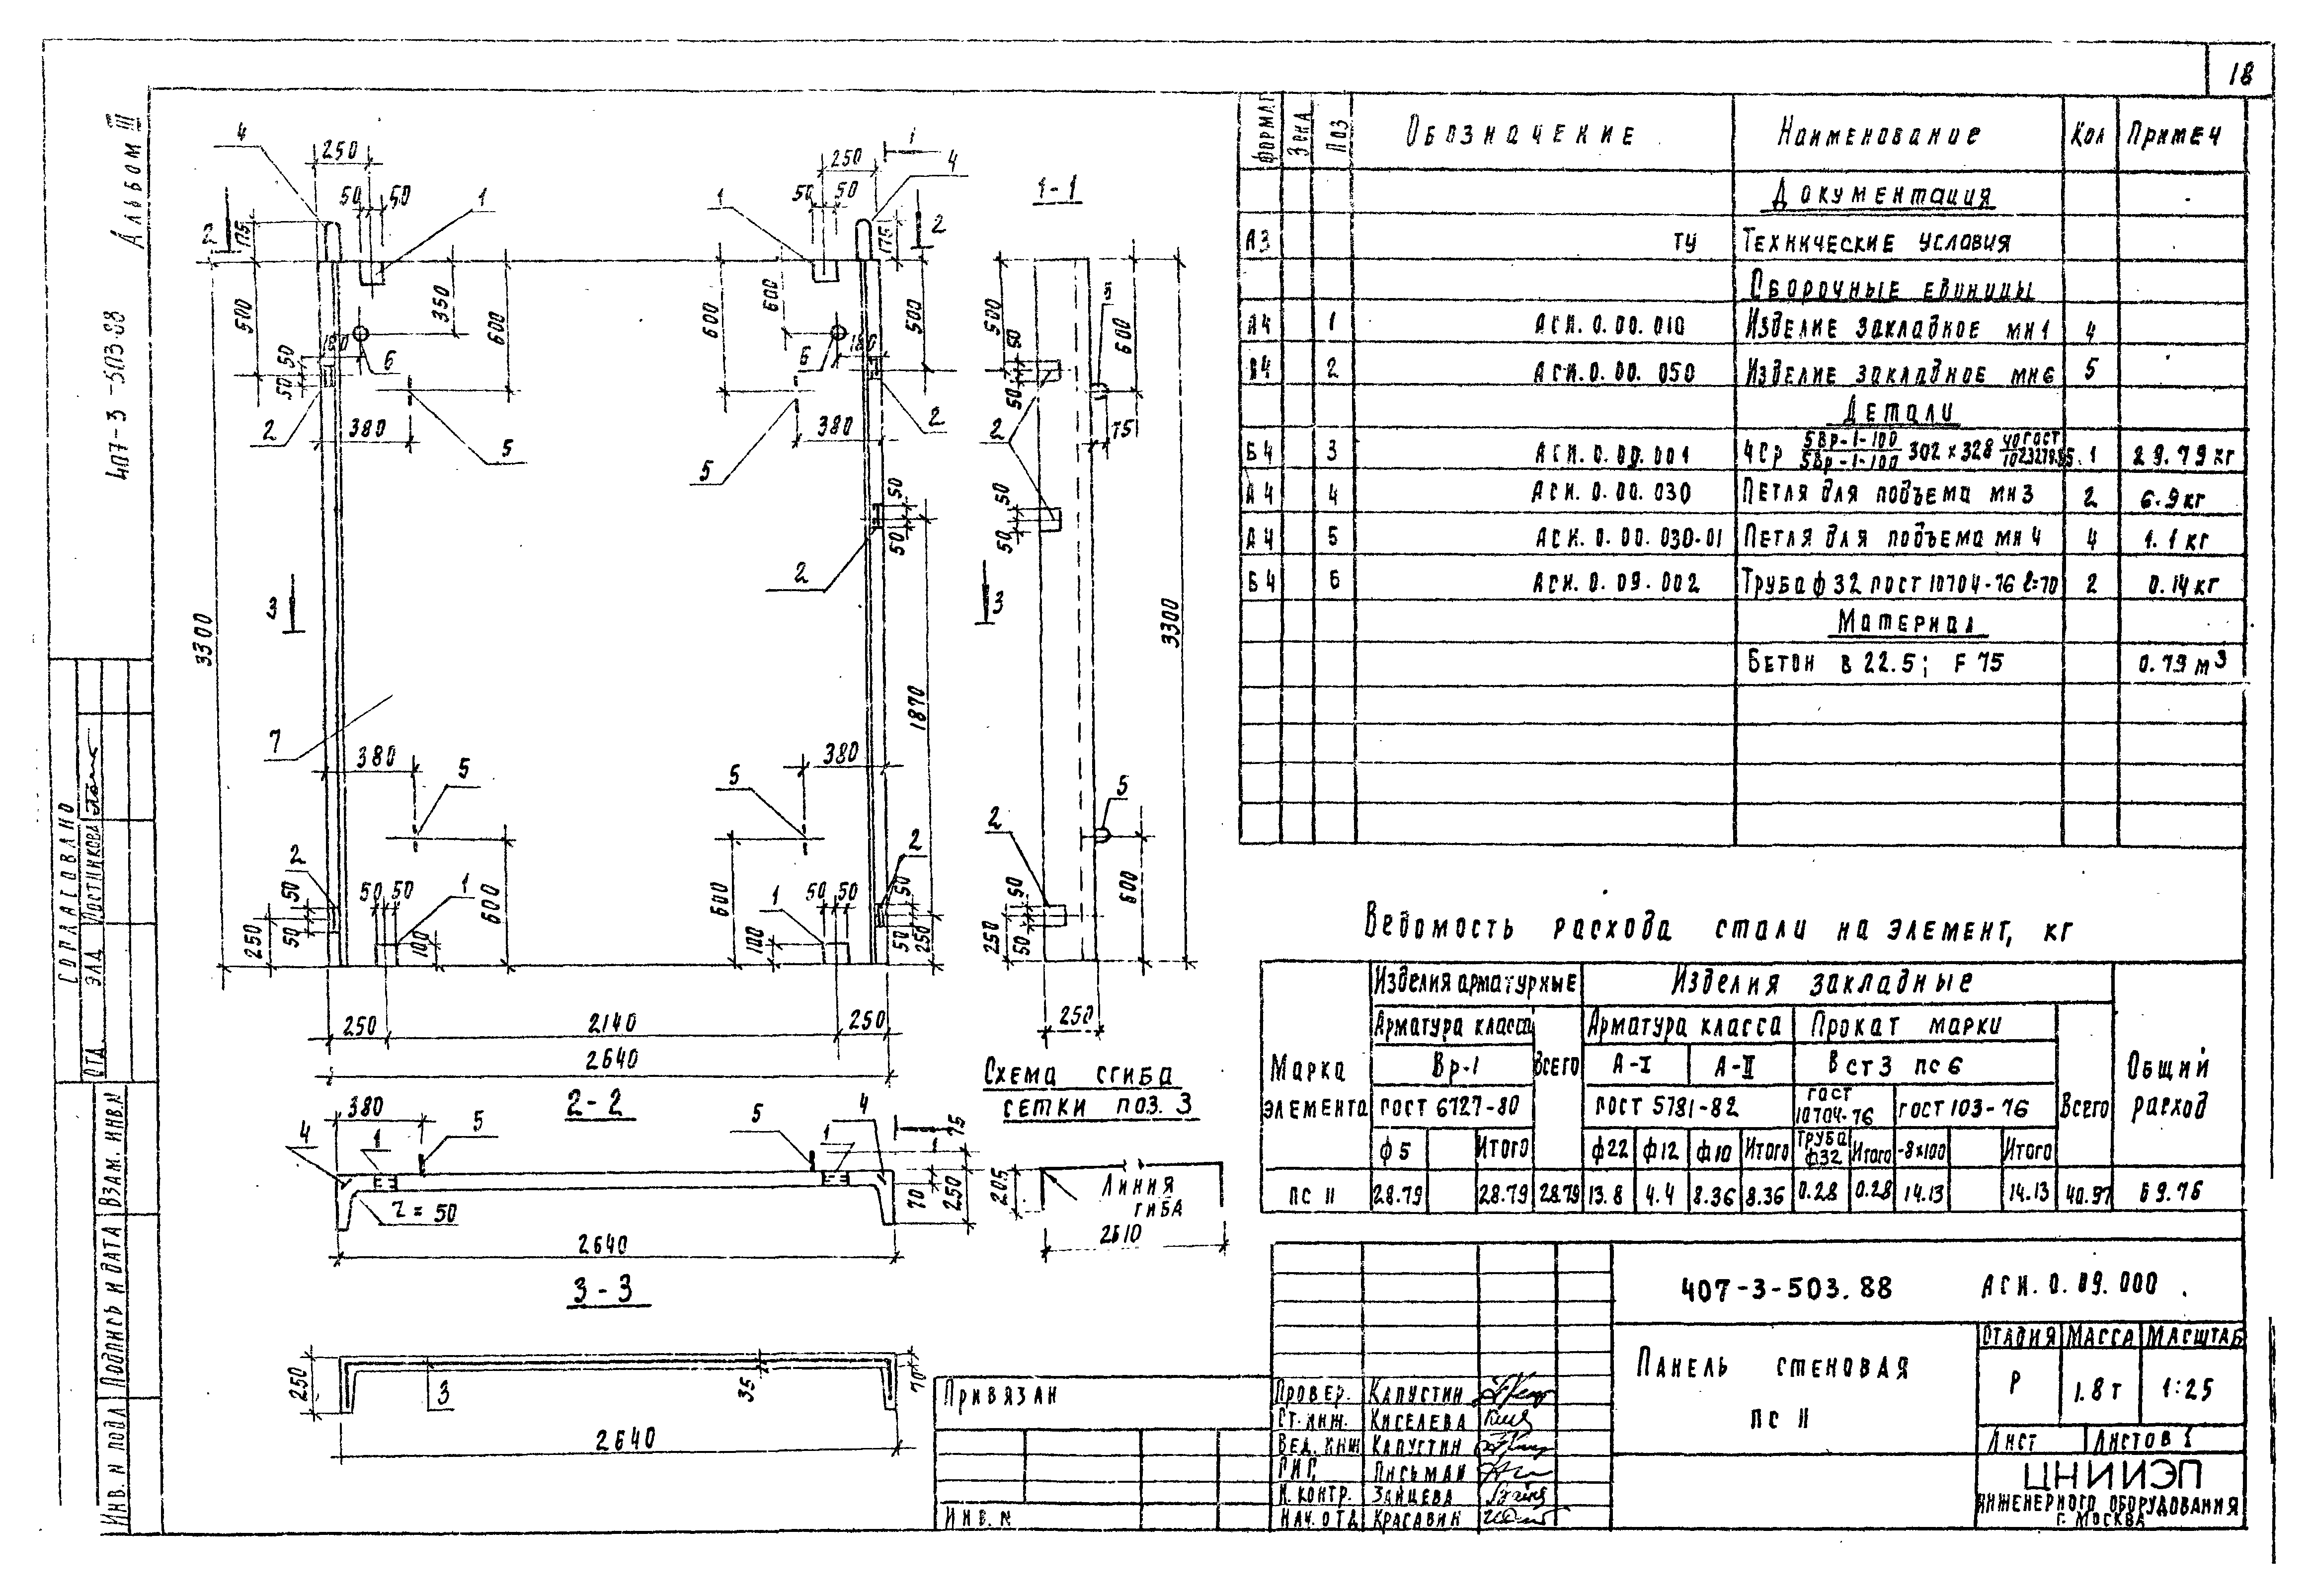 18
Альбом III
407-3-503.88
СОГЛАСОВАНО
ОТД. ЭЛД Постникова
ИНВ. N ПОДЛ Подпись и дата Взам. инв. N
4
250
50 50
1
175
2
500
350
600
180
6
50
50
2
380
5
3
3300
7
380
5
2
50
50
250
50 50
1
100
600
250
2140
250
2640
1
250
50 50
1
4
2
175
600
600
500
6
180
380
2
5
50
50
2
1870
380
5
2
50 50
1
100
600
50
50
250
1-1
500
50
50
5
600
75
2
50
50
3
3300
5
2
50
50
250
600
250
2-2
380
4
1
5
5
1
4
1
75
70
250
r = 50
2640
3-3
250
3
35
70
2640
Схема сгиба
сетки поз. 3
205
Линия
гиба
2610
Формат Зона Поз Обозначение Наименование Кол Примеч
Документация
А3 ТУ Технические условия
Сборочные единицы
А4 1 АСИ.0.00.010 Изделие закладное МН1 4
А4 2 АСИ.0.00.050 Изделие закладное МН6 5
Детали
Б4 3 АСИ.0.09.001 4Ср 5Вр-1-100 / 5Вр-1-100 302×328 1 29.79 кг
А4 4 АСИ.0.00.030 Петля для подъема МН3 2 6.9 кг
А4 5 АСИ.0.00.030-01 Петля для подъема МН4 4 1.1 кг
Б4 6 АСИ.0.09.002 Труба ф 32 ГОСТ 10704-76 ℓ=70 2 0.14 кг
Материал
Бетон В 22.5; F 75 0.79 м3
Ведомость расхода стали на элемент, кг
Марка элемента Изделия арматурные Изделия закладные Общий расход
Арматура класса Всего Арматура класса Прокат марки Всего
Вр-1 А-I А-II Вст3 пс6
ГОСТ 6727-80 ГОСТ 5781-82 ГОСТ 10704-76 ГОСТ 103-76
ф5 Итого ф22 ф12 ф10 Итого Труба ф32 Итого -8×100 Итого
ПС 11 28.79 28.79 28.79 13.8 4.4 8.36 8.36 0.28 0.28 14.13 14.13 40.97 69.76
407-3-503.88 АСИ.0.09.000
Панель стеновая
ПС 11
Стадия Масса Масштаб
Р 1.8 т 1:25
Лист Листов 1
ЦНИИЭП
ИНЖЕНЕРНОГО ОБОРУДОВАНИЯ
Г. МОСКВА
Провер. Капустин
Ст. инж. Киселева
Вед. инж Капустин
ГИП Письман
Н. контр. Зайцева
Нач. отд Красавин
Привязан
Инв. N